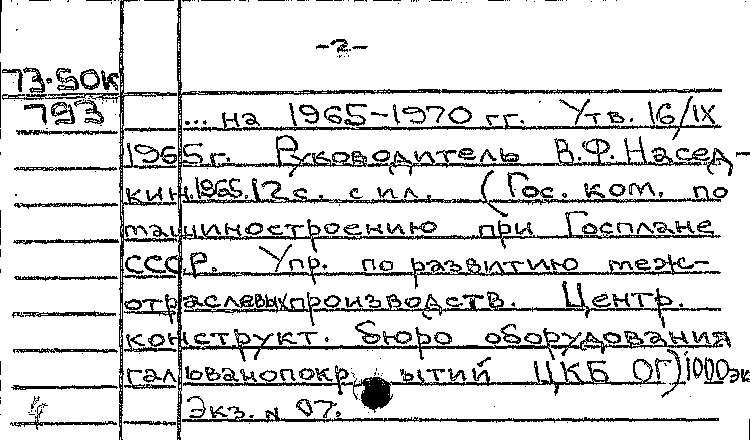 -2-
73-50к
793 ... на 1965-1970 гг. Утв. 16/IX
1965г. Руководитель В.Ф. Насед-
кин. 1965. 12 с. с ил. (Гос. ком. по
машиностроению при Госплане
СССР. Упр. по развитию меж-
отраслевых производств. Центр.
конструкт. бюро оборудования
гальванопокрытий ЦКБ ОГ) 1000 эк
Экз. N 07.